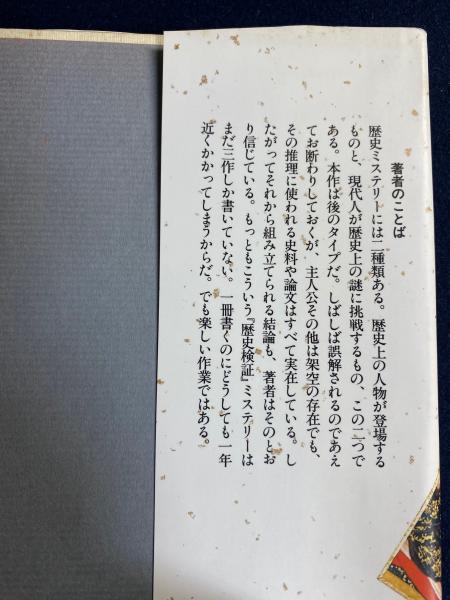 著者のことば
歴史ミステリーには二種類ある。歴史上の人物が登場する
ものと、現代人が歴史上の謎に挑戦するもの、この二つで
ある。本作は後のタイプだ。しばしば誤解されるのであえ
てお断わりしておくが、主人公その他は架空の存在でも、
その推理に使われる史料や論文はすべて実在している。し
たがってそれから組み立てられる結論も、著者はそのとお
り信じている。もっともこういう『歴史検証』ミステリーは
まだ三作しか書いていない。一冊書くのにどうしても一年
近くかかってしまうからだ。でも楽しい作業ではある。